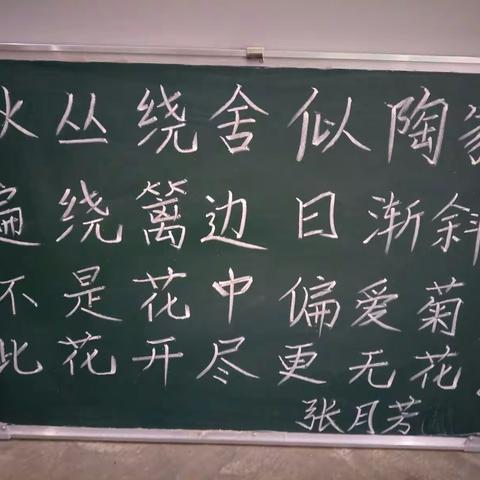 秋丛绕舍似陶家
遍绕篱边日渐斜
不是花中偏爱菊
此花开尽更无花
张月芳